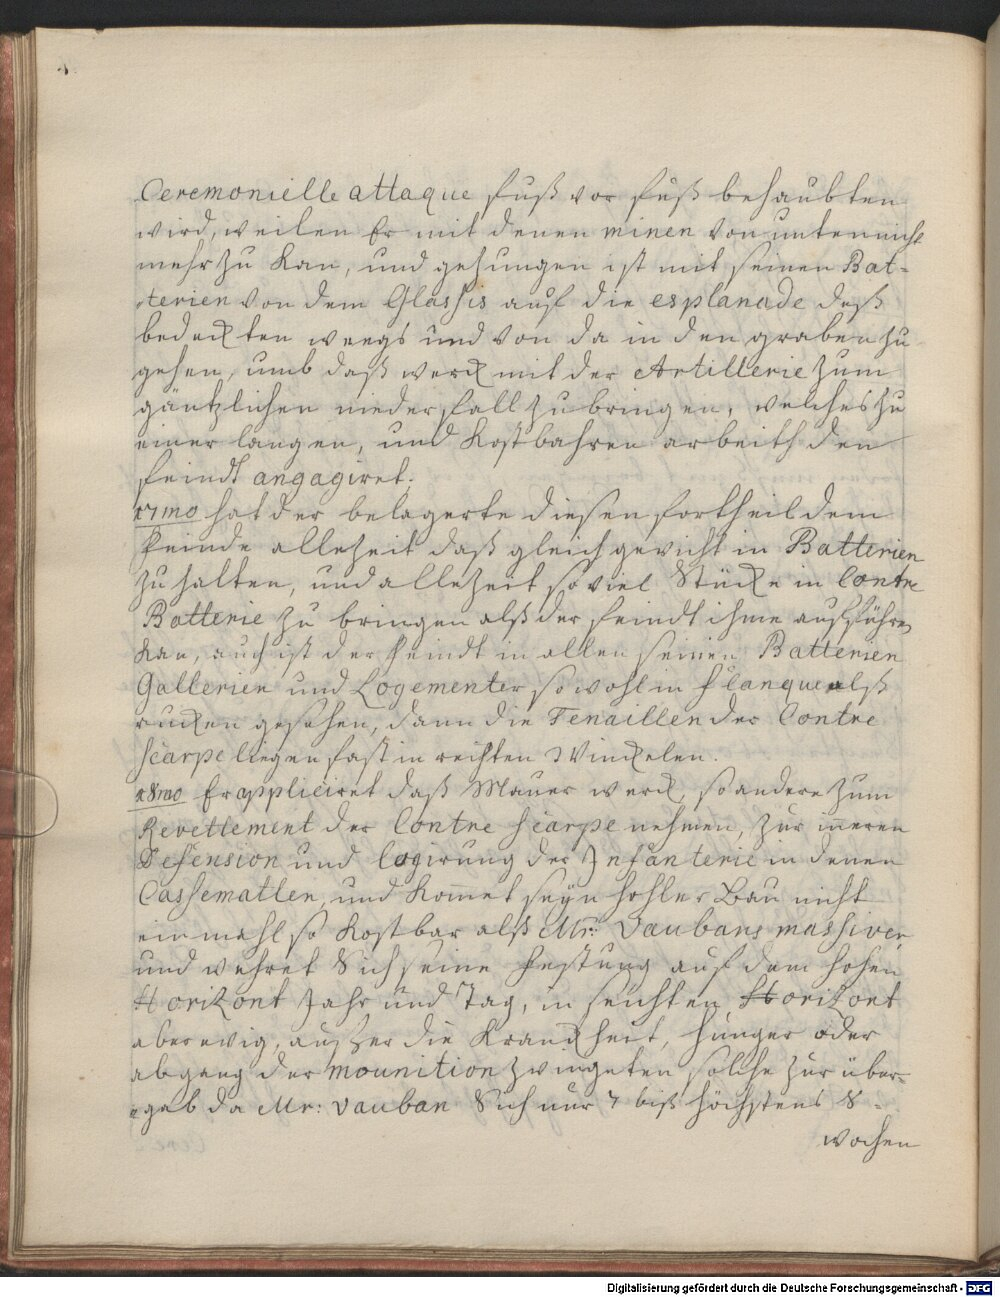 Ceremonielle attaque fuß vor fuß behaubten
wird, weilen Er mit denen minen von unten nicht
mehr zu kan, und gezungen ist mit seinen Bat-
terien von dem Glassis auf die esplanade deß
bedeckten weegs und von da in den graben zu
gehen, umb daß werck mit der Artillerie zum
gäntzlichen niederfall zu bringen, welches zu
einer langen, und kostbahren arbeith den
feindt angagiret.
17mo hat der belagerte diesen fortheil dem
feinde allezeit daß gleichgewicht in Batterien
zu halten, und allezeit so viel Stücke in Contre
Batterie zu bringen alß der feindt ihme aufführen
kan, auch ist der feindt in allen seinen Batterien
Gallerien und Logementer sowohl in flanque alß
rucken gesehen, dann die Tenaillen der Contre
scarpe liegen fast in rechten Winckelen.
18mo Er appliciret daß Mauer werck, so andere zum
Revettement der Contre scarpe nehmen, zur inneren
Defension und logirung der Infanterie in denen
Cassematten, und kommet seyn hohler Bau nicht
ein mahl so kostbar alß Mr: Vaubans massiver
und wehret Sich seine festung auf dem hohen
Horizont Jahr und Tag, in seichten Horizont
aber ewig, ausser die Kranckheit, hunger oder
abgang der mounition zwingeten solche zur über-
gab da Mr: Vauban Sich nur 7 biß höchstens 8-
wochen
Digitalisierung gefördert durch die Deutsche Forschungsgemeinschaft - DFG